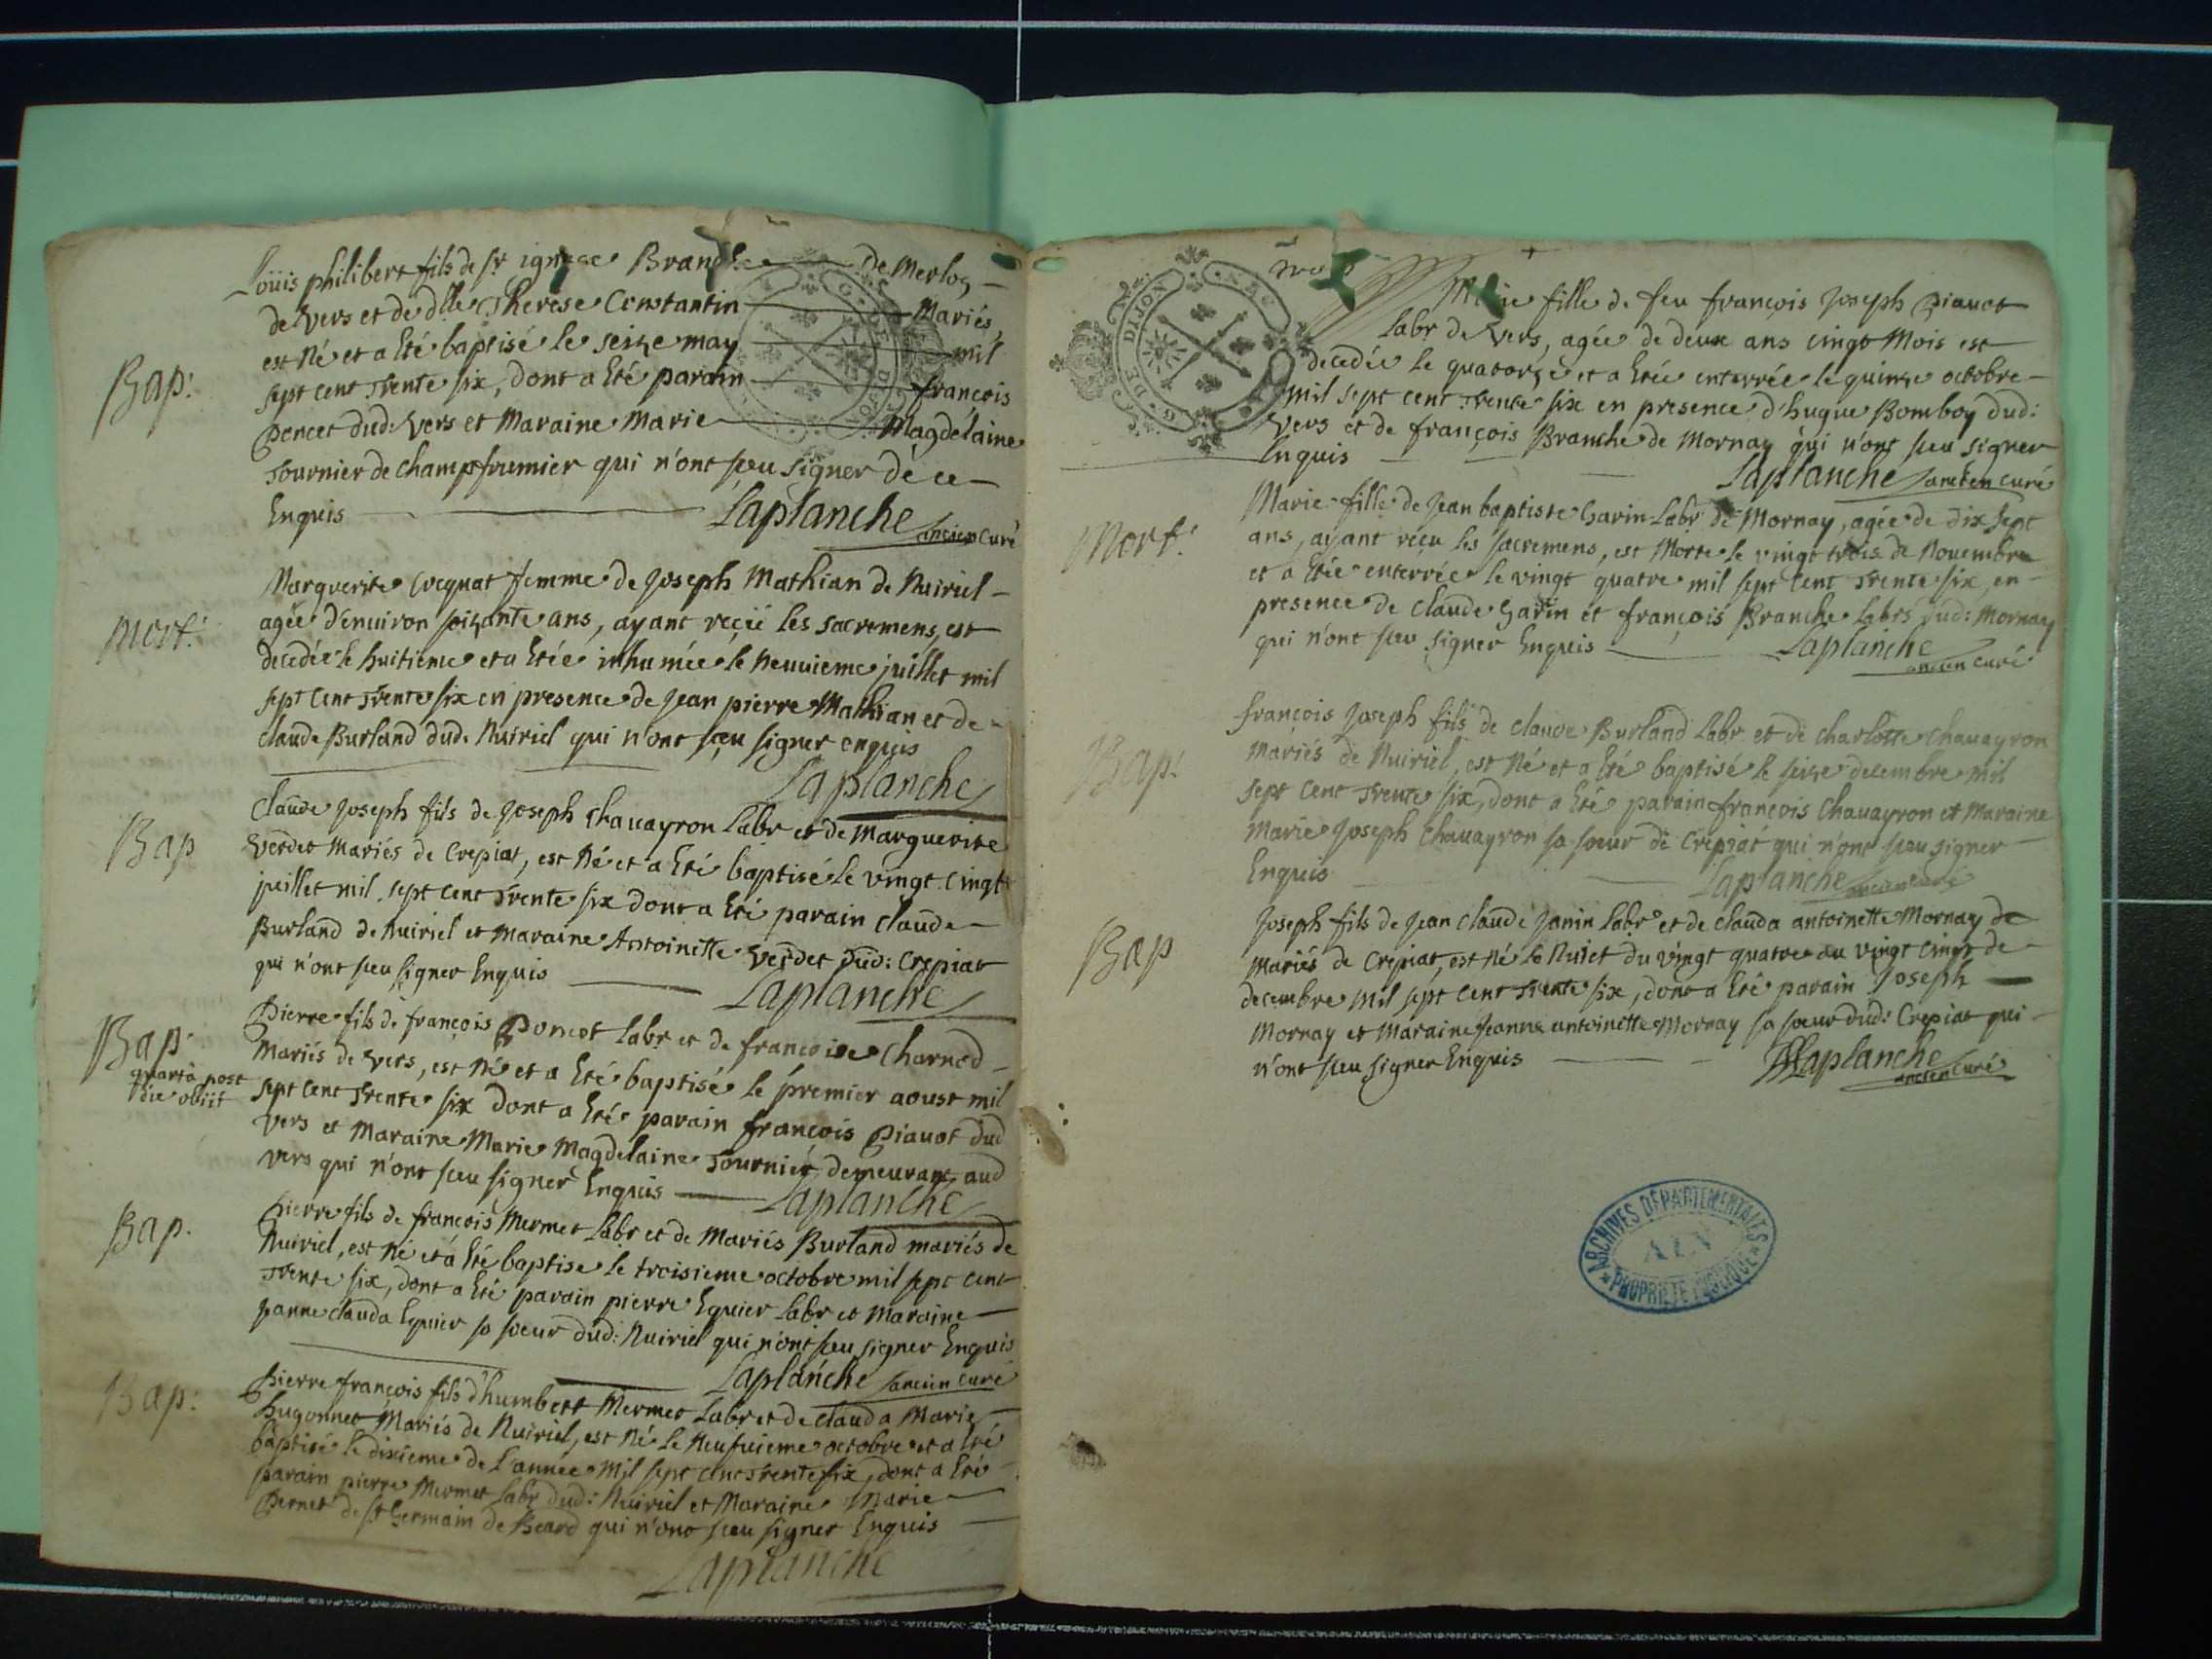 Bap:
Loüis philibert fils de sr ignace Branche de Merloz
de Vers et de dlle Therese Constantin Mariés,
est Né et a Eté baptisé le seize may mil
sept cent Trente six, dont a Eté parain françois
Poncet dud: Vers et Maraine Marie Magdelaine
Tournier de champfromier qui n'ont sceu signer de ce
Enquis Laplanche ancien curé
mort:
Marguerite Cocquat femme de Joseph Mathian de Nuiriel
agée d'enuiron soizante ans, ayant reçeü les sacremens, est
decedée le huitieme et a Etée inhumée le neuuieme juillet mil
sept cent Trente six en presence de Jean pierre Mathian et de
claude Burland dud. Nuiriel qui n'ont sçeu signer enquis
Laplanche
Bap
Claude Joseph fils de Joseph Chauayron Labr et de Marguerite
Verdet Mariés de Crepiat, est Né et a Eté baptisé le vingt cinqt
juillet mil sept cent Trente six dont a Eté parain claude
Burland de Nuiriel et maraine Antoinette Verdet dud: Crepiat
qui n'ont sceu signer Enquis Laplanche
Bap.
quartâ post
die obiit
Pierre fils de françois Poncet Labr et de françoise Charned
Mariés de Vers, est Né et a Eté baptisé le premier aoust mil
sept cent Trente six dont a Eté parain françois Piauot dud
Vers et Maraine Marie Magdelaine Tournier demeurant aud
Vers qui n'ont sceu signer Enquis Laplanche
Bap.
Pierre fils de françois Mermet Labr et de Mariés Burland mariés de
Nuiriel, est Né et a Eté baptisé le troisieme octobre mil sept cent
Trente six, dont a Eté parain pierre Eguier Labr et Maraine
Janne clauda Eguier sa soeur dud: Nuiriel qui n'ont sceu signer Enquis
Laplanche ancien curé
Bap:
Pierre françois fils d'humbert Mermet Labr et de clauda Marie
hugonnet Mariés de Nuiriel, est Né le Neufuieme octobre et a Eté
baptisé le dixieme de l'année Mil sept cent Trente six, dont a Eté
parain pierre Mermet Labr dud: Nuiriel et Maraine Marie
Pernet de st Germain de Beard qui n'ont sceu signer Enquis
Laplanche
G. DE DIJON
Marie fille de feu françois Joseph Piauot
Labr de Vers, agée de deux ans cinqt Mois est
decedée le quatorze et a Etée enterrée le quinze octobre
mil sept cent Trente six en presence d'hugue Bomboy dud:
Vers et de françois Branche de Mornay qui n'ont sceu signer
Enquis Laplanche ancien curé
Mort:
Marie fille de Jean baptiste Garin Labr de Mornay, agée de dix sept
ans, ayant reçu les sacremens, est Morte le vingt trois de Nouembre
et a Etée enterrée le vingt quatre mil sept cent Trente six, en
presence de Claude Garin et françois Branche Labrs dud: Mornay
qui n'ont sceu signer Enquis Laplanche
ancien curé
Bap:
françois Joseph fils de claude Burland Labr et de charlotte Chauayron
Mariés de Nuiriel, est Né et a Eté baptisé le seize decembre mil
sept cent Trente six, dont a Eté parain françois Chauayron et Maraine
Marie Joseph Chauayron sa soeur de Crepiat qui n'ont sceu signer
Enquis Laplanche ancien curé
Bap
Joseph fils de Jean Claude Janin Labr et de clauda antoinette Mornay de
Mariés de Crepiat, est Né le Nuict du vingt quatre au vingt cinqt de
decembre Mil sept cent Trente six, dont a Eté parain Joseph
Mornay et Maraine Jeanne antoinette Mornay sa soeur dud: Crepiat qui
n'ont sceu signer Enquis Laplanche
ancien curé
ARCHIVES DÉPARTEMENTALES
AIN
PROPRIÉTÉ PUBLIQUE